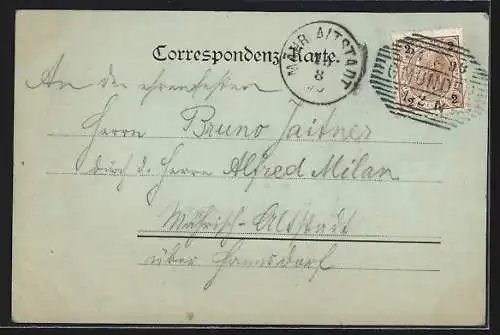 Correspondenz-Karte.
MÄHR. ALTSTADT
8
GMUND
2
2
An den ehrenfesten
Herrn Bruno Jaitner
durch d. Herrn Alfred Milan
Mährisch-Altstadt
über Hannsdorf